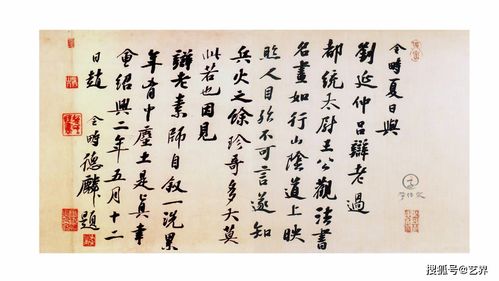 令時夏日與
劉延仲呂辯老過
都統太尉王公觀法書
名畫如行山陰道上映
照人目殆不可言遂知
兵火之餘珍奇多大莫
此若也因見
辯老素師自敘一洗累
年胷中塵土是真幸
會紹興二年五月十二
日趙令時德麟題
搜狐号@艺界